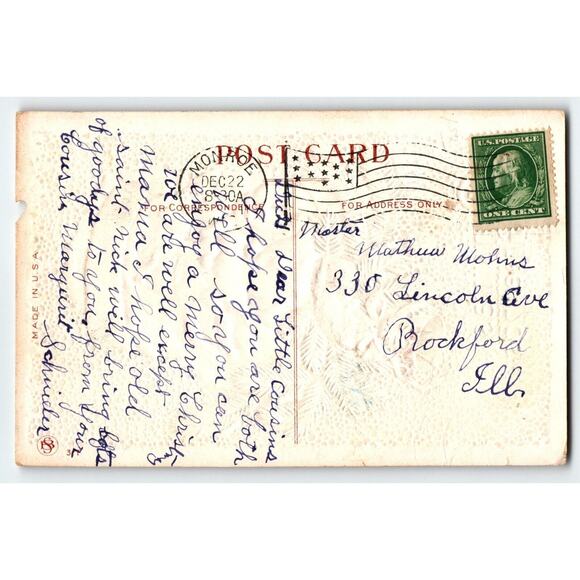 POST CARD
FOR CORRESPONDENCE
FOR ADDRESS ONLY
MONROE
DEC 22
8-30A
U.S. POSTAGE
ONE CENT
Master
Mathew Mohns
330 Lincoln Ave
Rockford
Ill.
Dear Little Cousins
I hope you are both
well so you can
enjoy a merry Christ
we all well except
Mama I hope old
saint nick will bring lots
of goodys to you, from your
Cousin Marguerit
Schneider
MADE IN U.S.A.